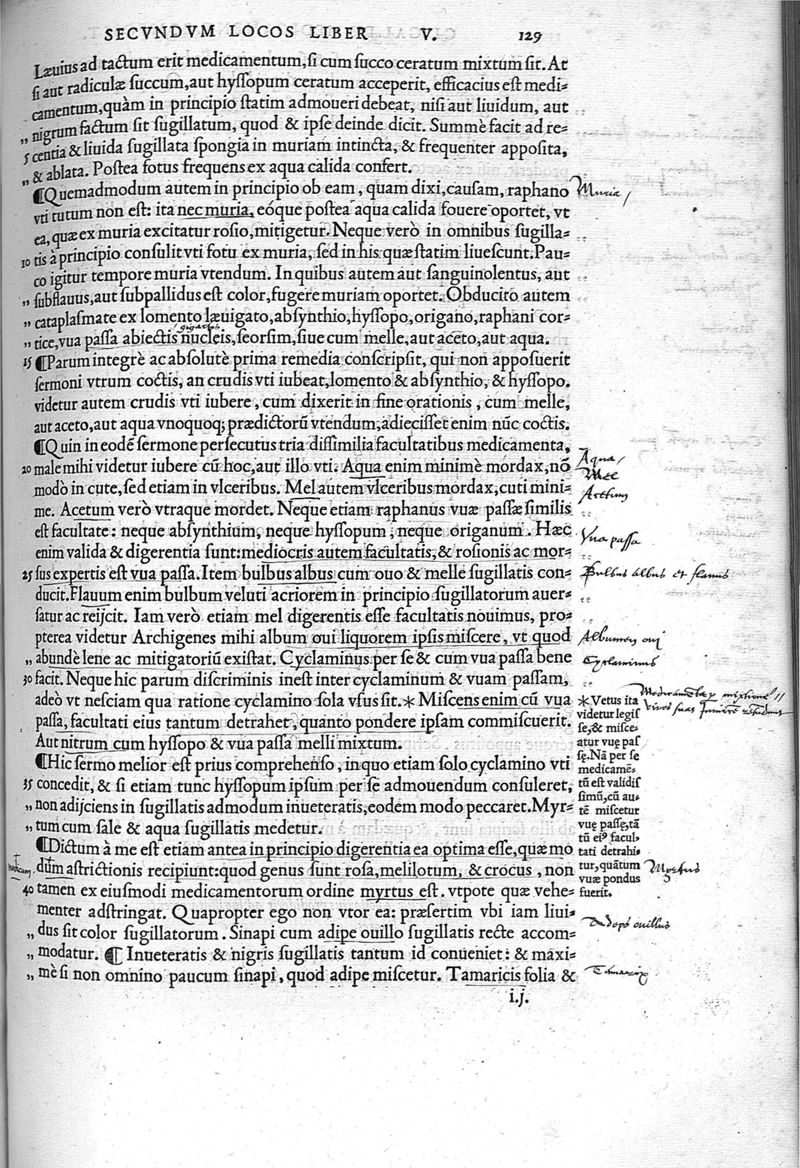 SECVNDVM LOCOS LIBER V. 129
Læuius ad tactum erit medicamentum, si cum succo ceratum mixtum sit. At
si aut radiculæ succum, aut hyssopum ceratum acceperit, efficacius est medi-
camentum, quàm in principio statim admoueri debeat, nisi aut liuidum, aut
„ nigrum factum sit sugillatum, quod & ipse deinde dicit. Summè facit ad re-
5 centia & liuida sugillata spongia in muriam intincta, & frequenter apposita,
„ & ablata. Postea fotus frequens ex aqua calida confert.
¶Quemadmodum autem in principio ob eam, quam dixi, causam, raphano
vti tutum non est: ita nec muria, eóque postea aqua calida fouere oportet, vt
ea, quæ ex muria excitatur rosio, mitigetur. Neque verò in omnibus sugilla-
10 tis à principio consulit vti fotu ex muria, sed in his quæ statim liuescunt. Pau-
co igitur tempore muria vtendum. In quibus autem aut sanguinolentus, aut
„ subflauus, aut subpallidus est color, fugere muriam oportet. Obducito autem
„ cataplasmate ex lomento læuigato, absynthio, hyssopo, origano, raphani cor-
„ tice, vua passa abiectis nucleis, seorsim, siue cum melle, aut aceto, aut aqua.
15 ¶Parum integrè ac absolutè prima remedia conscripsit, qui non apposuerit
sermoni vtrum coctis, an crudis vti iubeat, lomento & absynthio, & hyssopo.
videtur autem crudis vti iubere, cum dixerit in fine orationis, cum melle,
aut aceto, aut aqua vnoquoq; prædictorū vtendum, adiecisset enim nūc coctis.
¶Quin in eodē sermone persecutus tria dissimilia facultatibus medicamenta,
20 male mihi videtur iubere cū hoc, aut illo vti. Aqua enim minimè mordax, nō
modò in cute, sed etiam in vlceribus. Mel autem vlceribus mordax, cuti mini-
me. Acetum verò vtraque mordet. Neque etiam raphanus vuæ passæ similis
est facultate: neque absynthium, neque hyssopum, neque origanum. Hæc
enim valida & digerentia sunt: mediocris autem facultatis, & rosionis ac mor-
25 sus expertis est vua passa. Item bulbus albus cum ouo & melle sugillatis con-
ducit. Flauum enim bulbum veluti acriorem in principio sugillatorum auer-
satur ac reijcit. Iam verò etiam mel digerentis esse facultatis nouimus, pro-
pterea videtur Archigenes mihi album oui liquorem ipsis miscere, vt quod
„ abundè lene ac mitigatoriū existat. Cyclaminus per se & cum vua passa bene
30 facit. Neque hic parum discriminis inest inter cyclaminum & vuam passam,
adeò vt nesciam qua ratione cyclamino sola vsus sit.* Miscens enim cū vua
passa, facultati eius tantum detrahet, quanto pondere ipsam commiscuerit.
Aut nitrum cum hyssopo & vua passa melli mixtum.
¶Hic sermo melior est prius comprehenso, in quo etiam solo cyclamino vti
35 concedit, & si etiam tunc hyssopum ipsum per se admouendum consuleret,
„ non adijciens in sugillatis admodum inueteratis, eodem modo peccaret. Myr-
„ tum cum sale & aqua sugillatis medetur.
¶Dictum à me est etiam antea in principio digerentia ea optima esse, quæ mo
dum astrictionis recipiunt: quod genus sunt rosa, melilotum, & crocus, non
40 tamen ex eiusmodi medicamentorum ordine myrtus est. vtpote quæ vehe-
menter adstringat. Quapropter ego non vtor ea: præsertim vbi iam liui-
„ dus sit color sugillatorum. Sinapi cum adipe ouillo sugillatis recte accom-
„ modatur. ¶ Inueteratis & nigris sugillatis tantum id conueniet: & maxi-
„ mè si non omnino paucum sinapi, quod adipe miscetur. Tamaricis folia &
i.j.
Muria
Aqua
Mel
Acetum
Vua passa
Bulbus albus et flauus
Albumen oui
Cyclaminus
* Vetus ita
videtur legis
se, & misce-
atur vuę pas
sę. Nā per se
medicamē-
tū est validis
simū, cū au-
tē miscetur
vuę passę, tā
tū ei⁹ facul-
tati detrahi-
tur, quātum
vuæ pondus
fuerit.
Myrtus